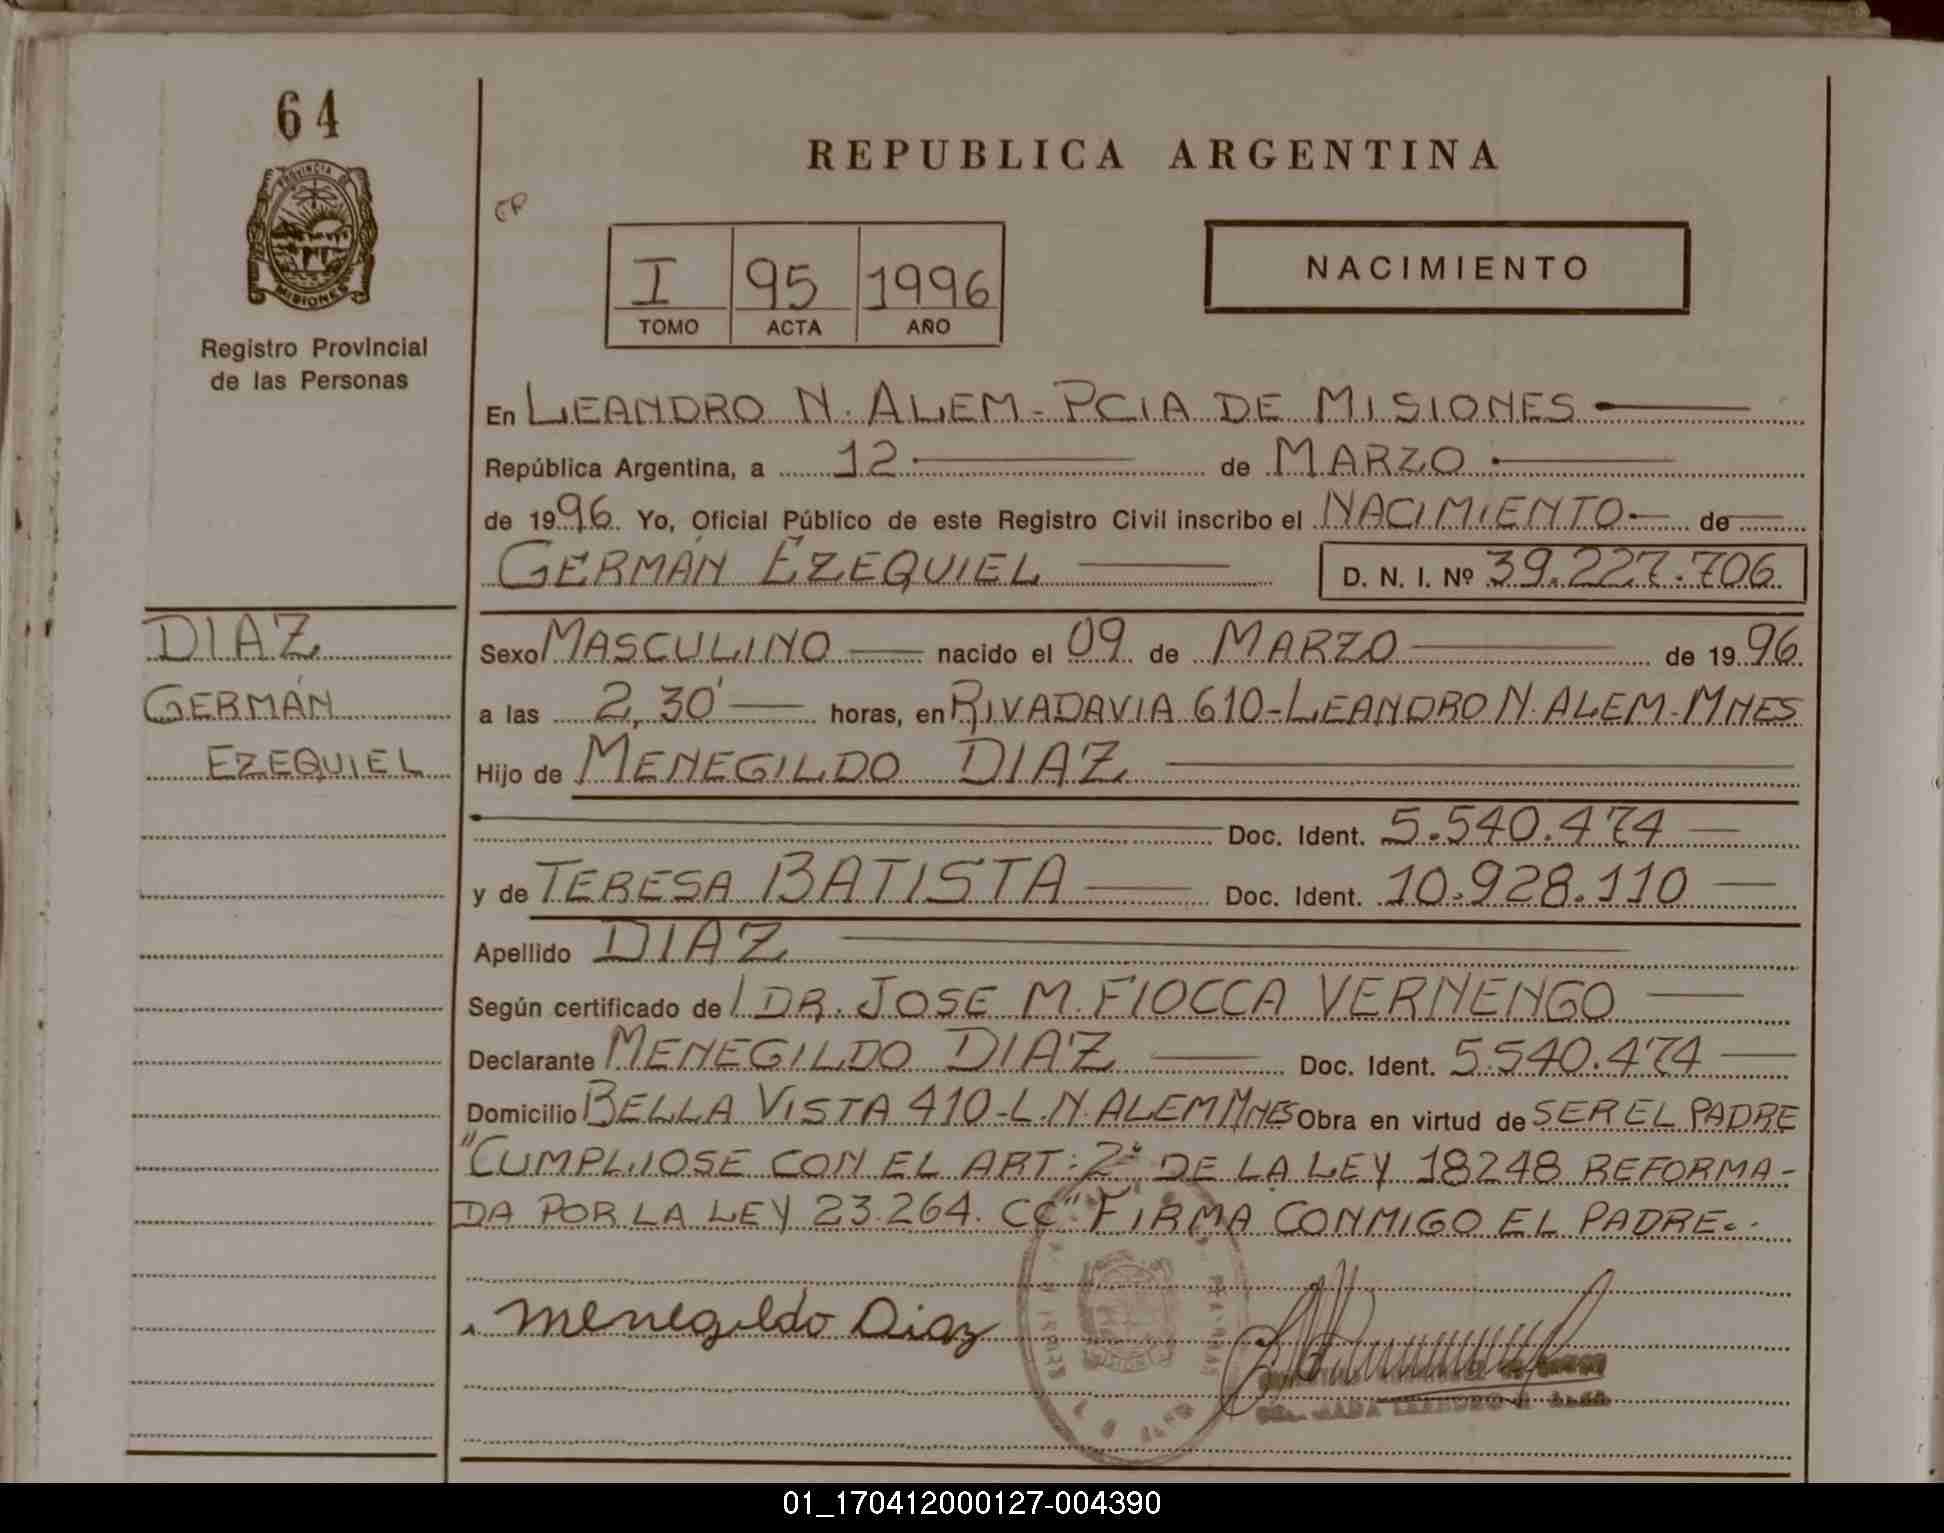 64
PROVINCIA DE
MISIONES
Registro Provincial
de las Personas
DIAZ
GERMÁN
EZEQUIEL
REPUBLICA ARGENTINA
I 95 1996
TOMO ACTA AÑO
NACIMIENTO
En LEANDRO N. ALEM - PCIA DE MISIONES
República Argentina, a 12 de MARZO
de 1996. Yo, Oficial Público de este Registro Civil inscribo el NACIMIENTO de
GERMÁN EZEQUIEL D. N. I. Nº 39.227.706
Sexo MASCULINO nacido el 09 de MARZO de 1996
a las 2,30' horas, en RIVADAVIA 610-LEANDRO N. ALEM-MNES
Hijo de MENEGILDO DIAZ
Doc. Ident. 5.540.474
y de TERESA BATISTA Doc. Ident. 10.928.110
Apellido DIAZ
Según certificado de DR. JOSE M. FIOCCA VERNENGO
Declarante MENEGILDO DIAZ Doc. Ident. 5.540.474
Domicilio BELLA VISTA 410-L.N. ALEM MNES Obra en virtud de SER EL PADRE
"CUMPLIOSE CON EL ART: 2º DE LA LEY 18248 REFORMA-
DA POR LA LEY 23.264. CC" FIRMA CONMIGO EL PADRE..
Menegildo Diaz
01_170412000127-004390